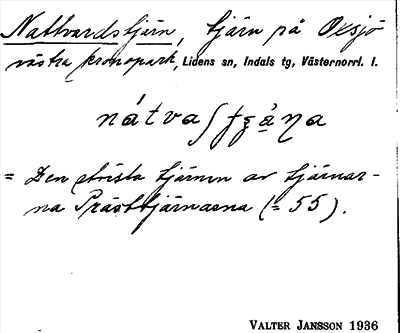 Nattvardstjärn, tjärn på Oxsjö
västra kronopark, Lidens sn, Indals tg, Västernorrl. l.
= Den största tjärnen av tjärnar-
na Prästtjärnarna (= 55).
VALTER JANSSON 1936